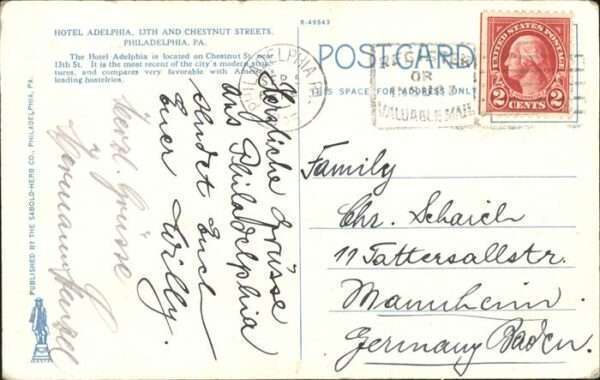 HOTEL ADELPHIA, 13TH AND CHESTNUT STREETS,
PHILADELPHIA, PA.
The Hotel Adelphia is located on Chestnut St. near
13th St. It is the most recent of the city's modern
tures, and compares very favorable with
leading hostelries.
R-49543
POSTCARD
THIS SPACE FOR ADDRESS ONLY
PHILADELPHIA, PA.
REGISTER
OR
VALUABLE MAIL
UNITED STATES POSTAGE
2 CENTS 2
Herzliche Grüsse
aus Philadelphia
sendet Euch
Euer Willy.
Herzl. Grüsse
Hermann
Family
Chr. Schaich
11 Tattersallstr.
Mannheim
Germany Baden.
PUBLISHED BY THE SABOLD-HERB CO., PHILADELPHIA, PA.